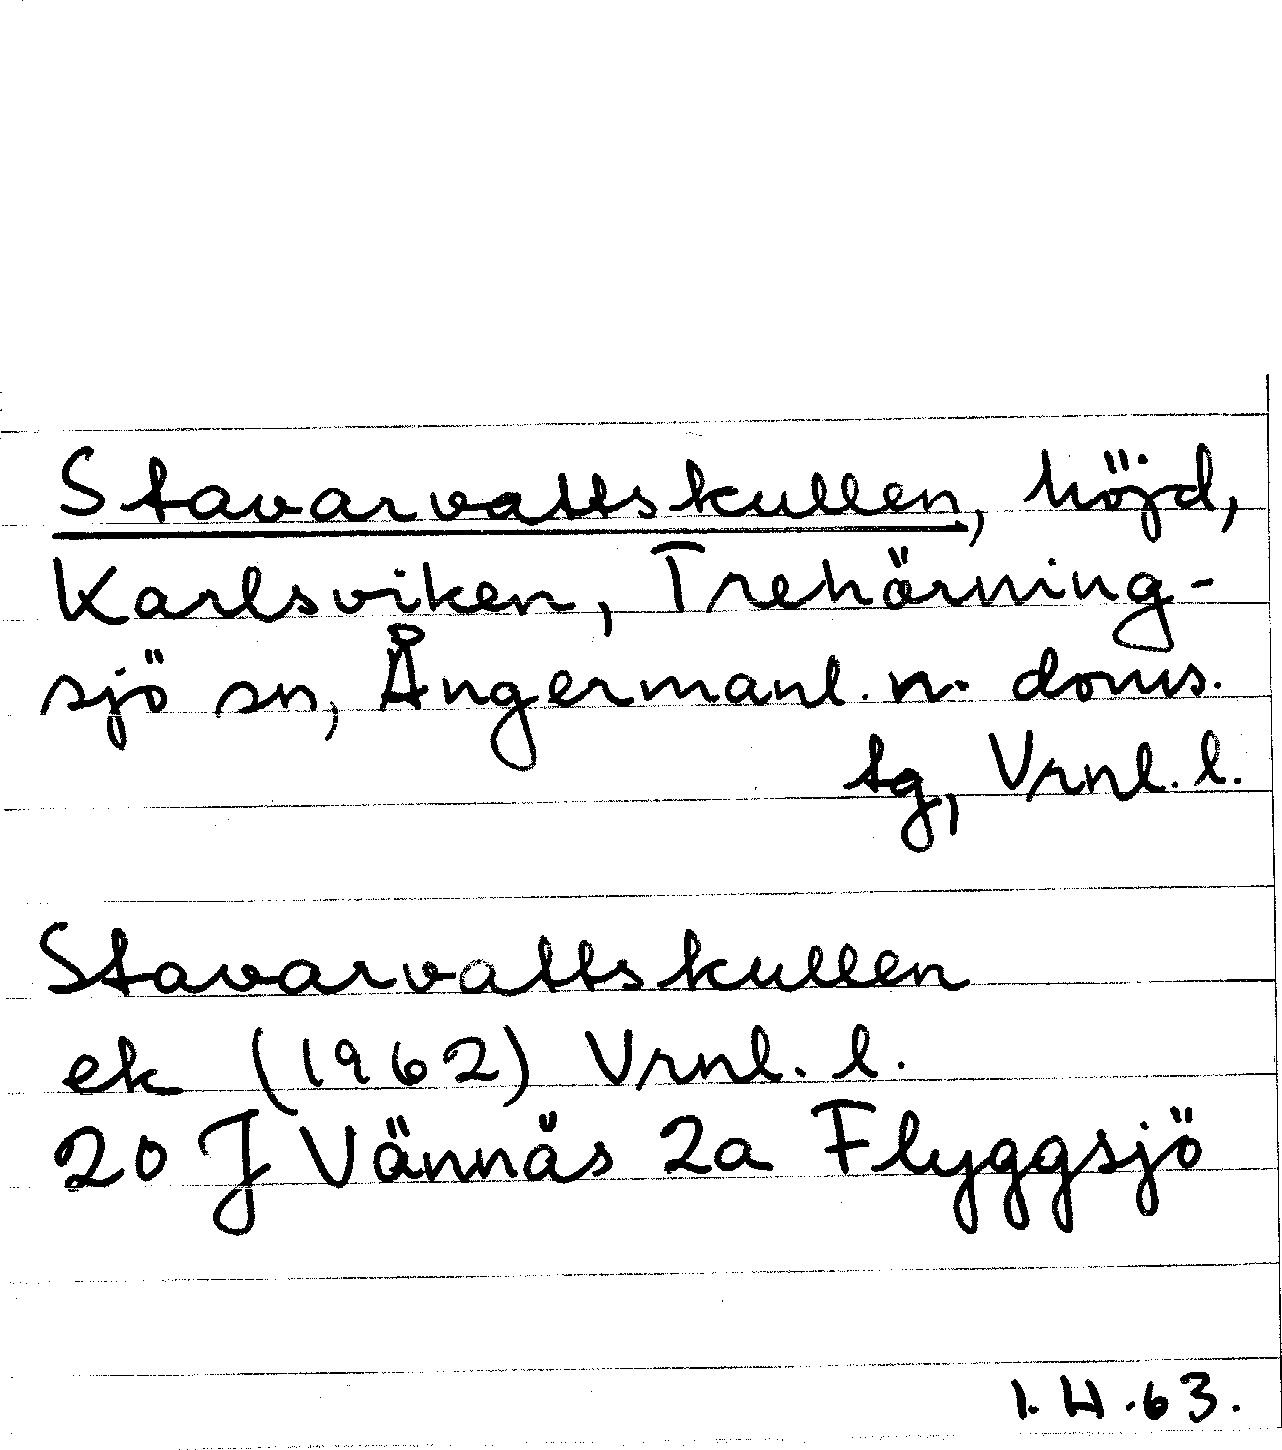 Stavarvattskullen, höjd,
Karlsviken, Trehörning-
sjö sn, Ångermanl. n. doms.
tg, Vrnl. l.
Stavarvattskullen
ek (1962) Vrnl. l.
20 J Vännäs 2a Flyggsjö
I. H. 63.